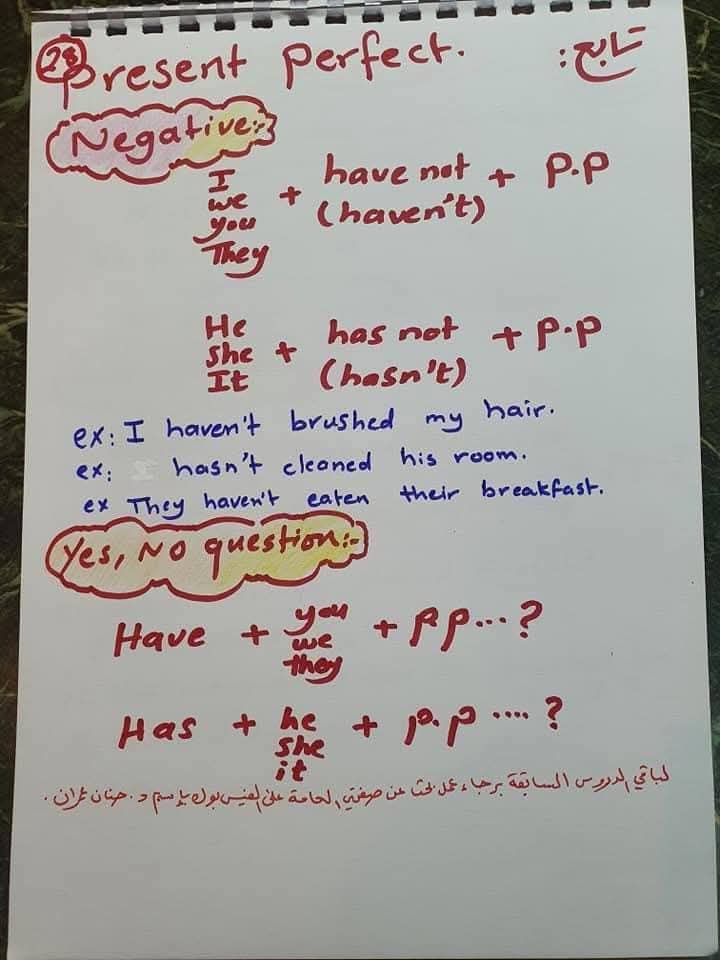 28
Present perfect.
تابع:
Negative:-
I
we
you
They
+ have not + P.P
(haven't)
He
she
It
+ has not + P.P
(hasn't)
ex: I haven't brushed my hair.
ex: hasn't cleaned his room.
ex They haven't eaten their breakfast.
Yes, No question:-
Have + you + P P...?
we
they
Has + he + P.P ....?
she
it
لباقي الدروس السابقة برجاء عمل بحث عن صفحتي العامة على الفيس بوك بإسم د. حنان عمران.